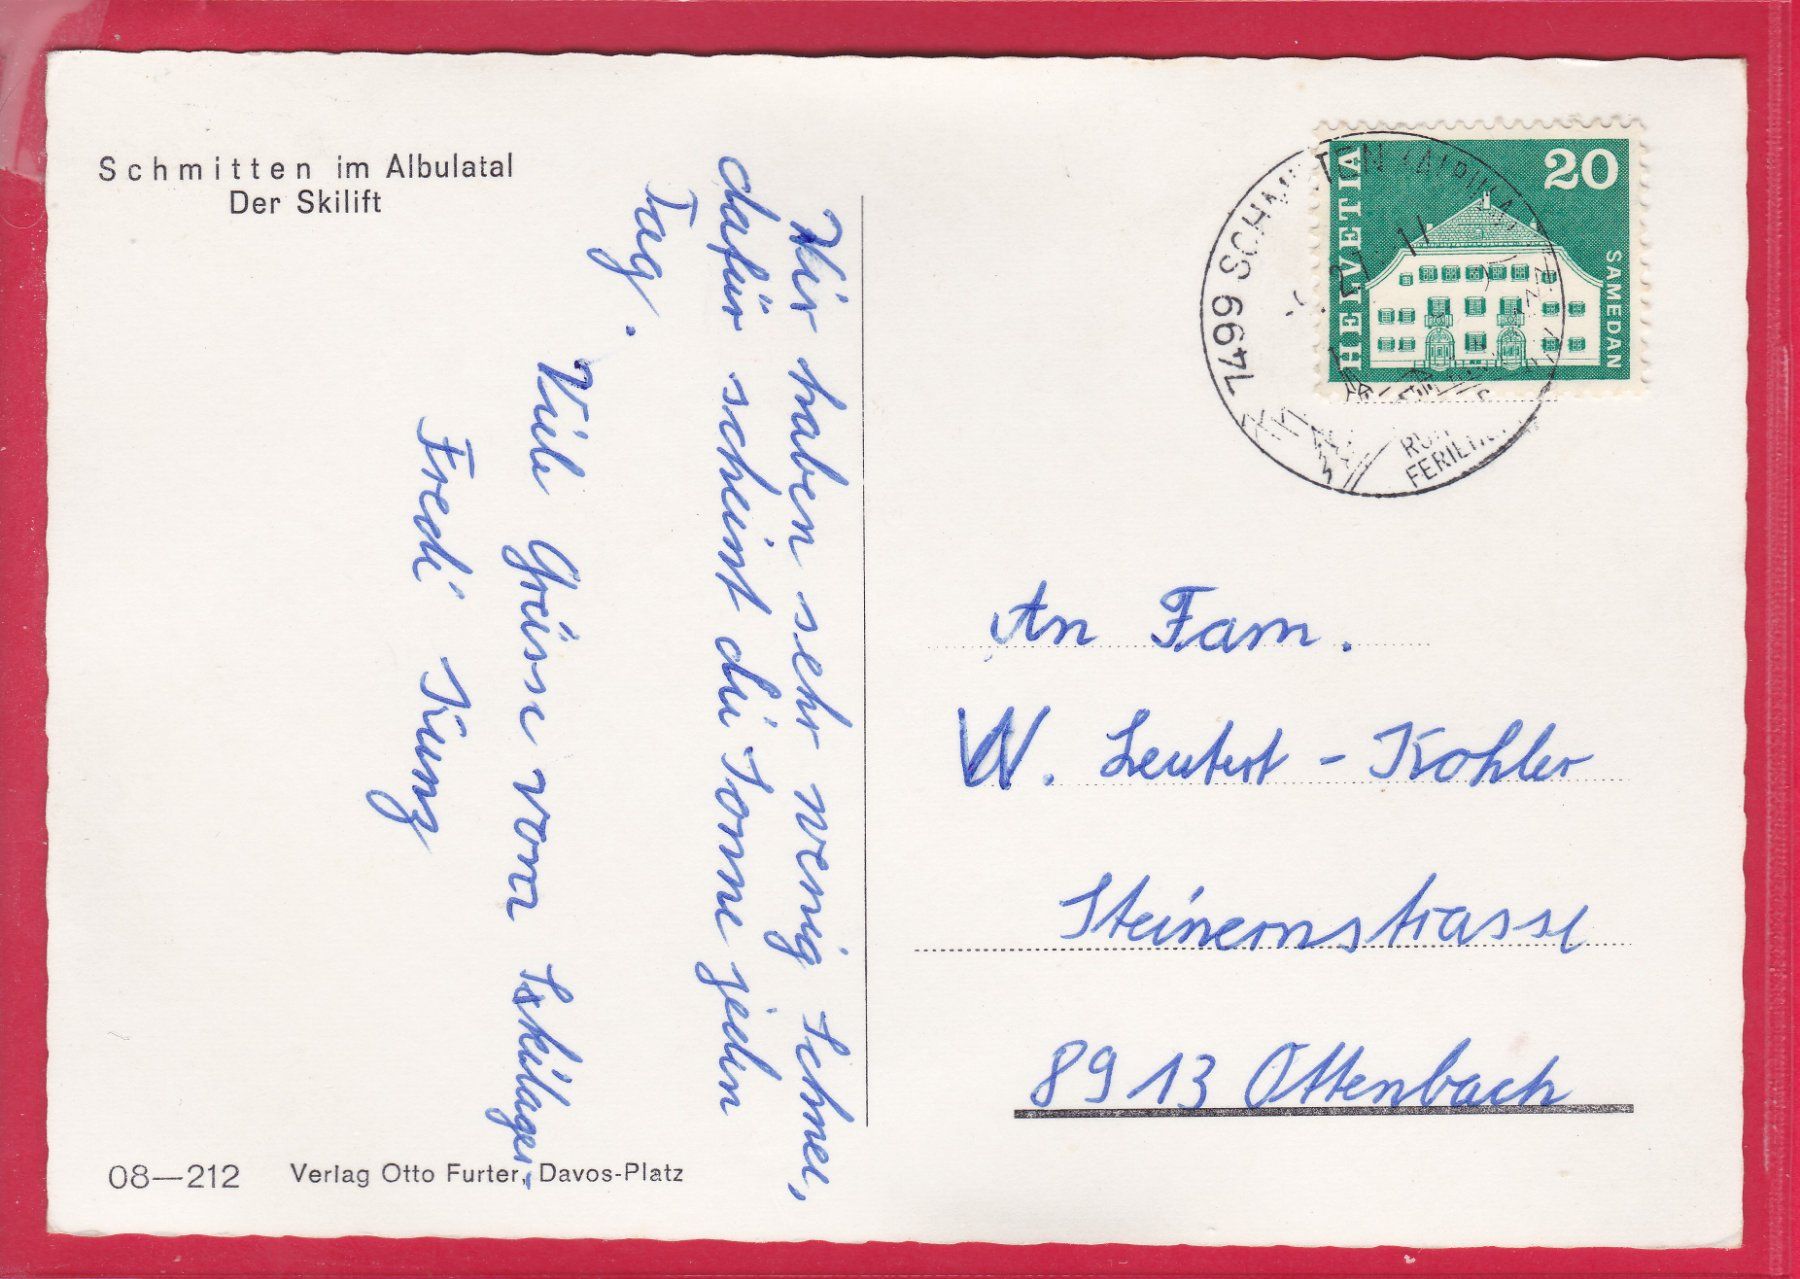 Schmitten im Albulatal
Der Skilift
Wir haben sehr wenig Schnee,
dafür scheint die Sonne jeden
Tag.
Viele Grüsse vom Skilager
Fredi Kunz
HELVETIA
20
SAMEDAN
7499 SCHMITTEN
An Fam.
W. Leutert - Kohler
Steinernstrasse
8913 Ottenbach
08—212 Verlag Otto Furter, Davos-Platz